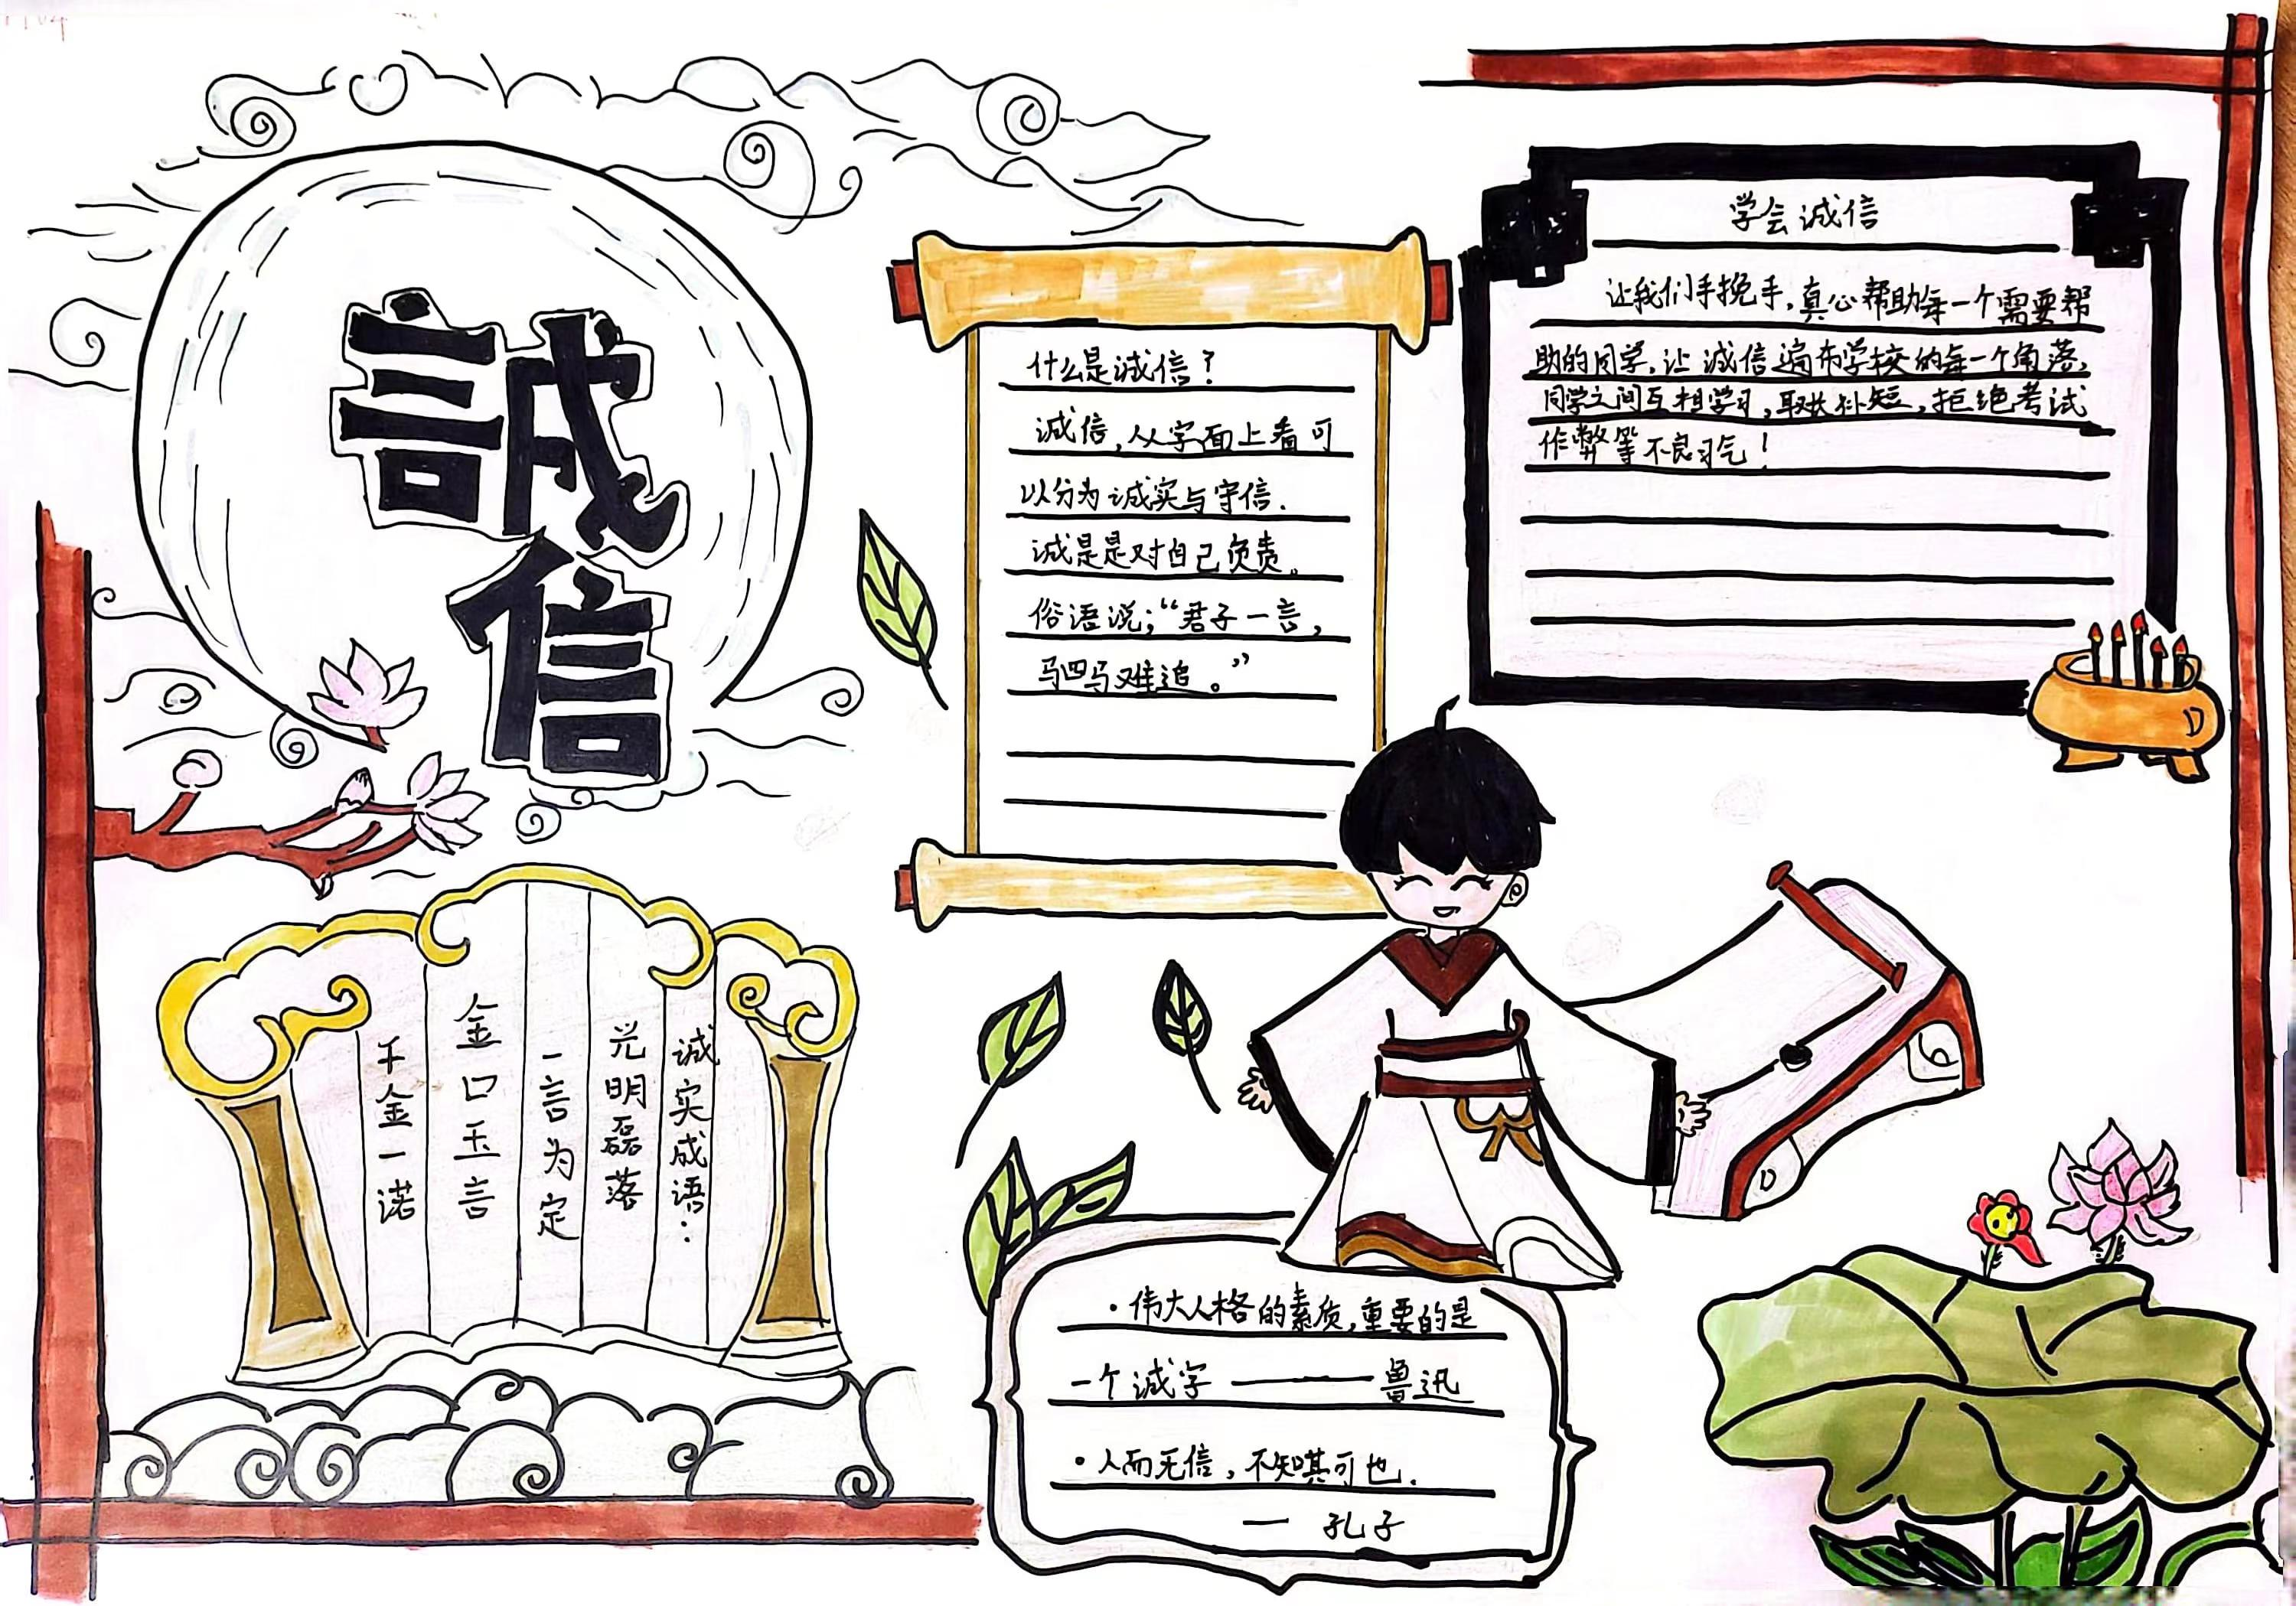 誠
信
什么是诚信？
诚信，从字面上看可
以分为诚实与守信.
诚是是对自己负责。
俗语说；“君子一言，
马四马难追。”
学会诚信
让我们手挽手，真心帮助每一个需要帮
助的同学，让诚信遍布学校的每一个角落，
同学之间互相学习，取长补短，拒绝考试
作弊等不良习气！
诚实成语：
光明磊落
一言为定
金口玉言
千金一诺
·伟大人格的素质，重要的是
一个诚字 ——— 鲁迅
·人而无信，不知其可也.
— 孔子